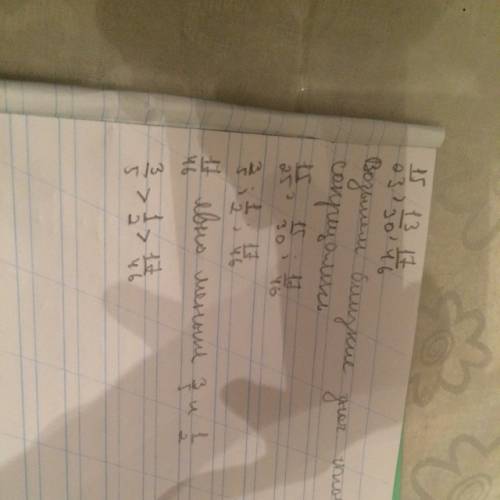 15/23, 13/30, 17/46
Возьмем близкие дроби чтоб
сократились
15/25, 15/30, 17/46
3/5, 1/2, 17/46
17/46 явно меньше 3/5 и 1/2
3/5 > 1/2 > 17/46